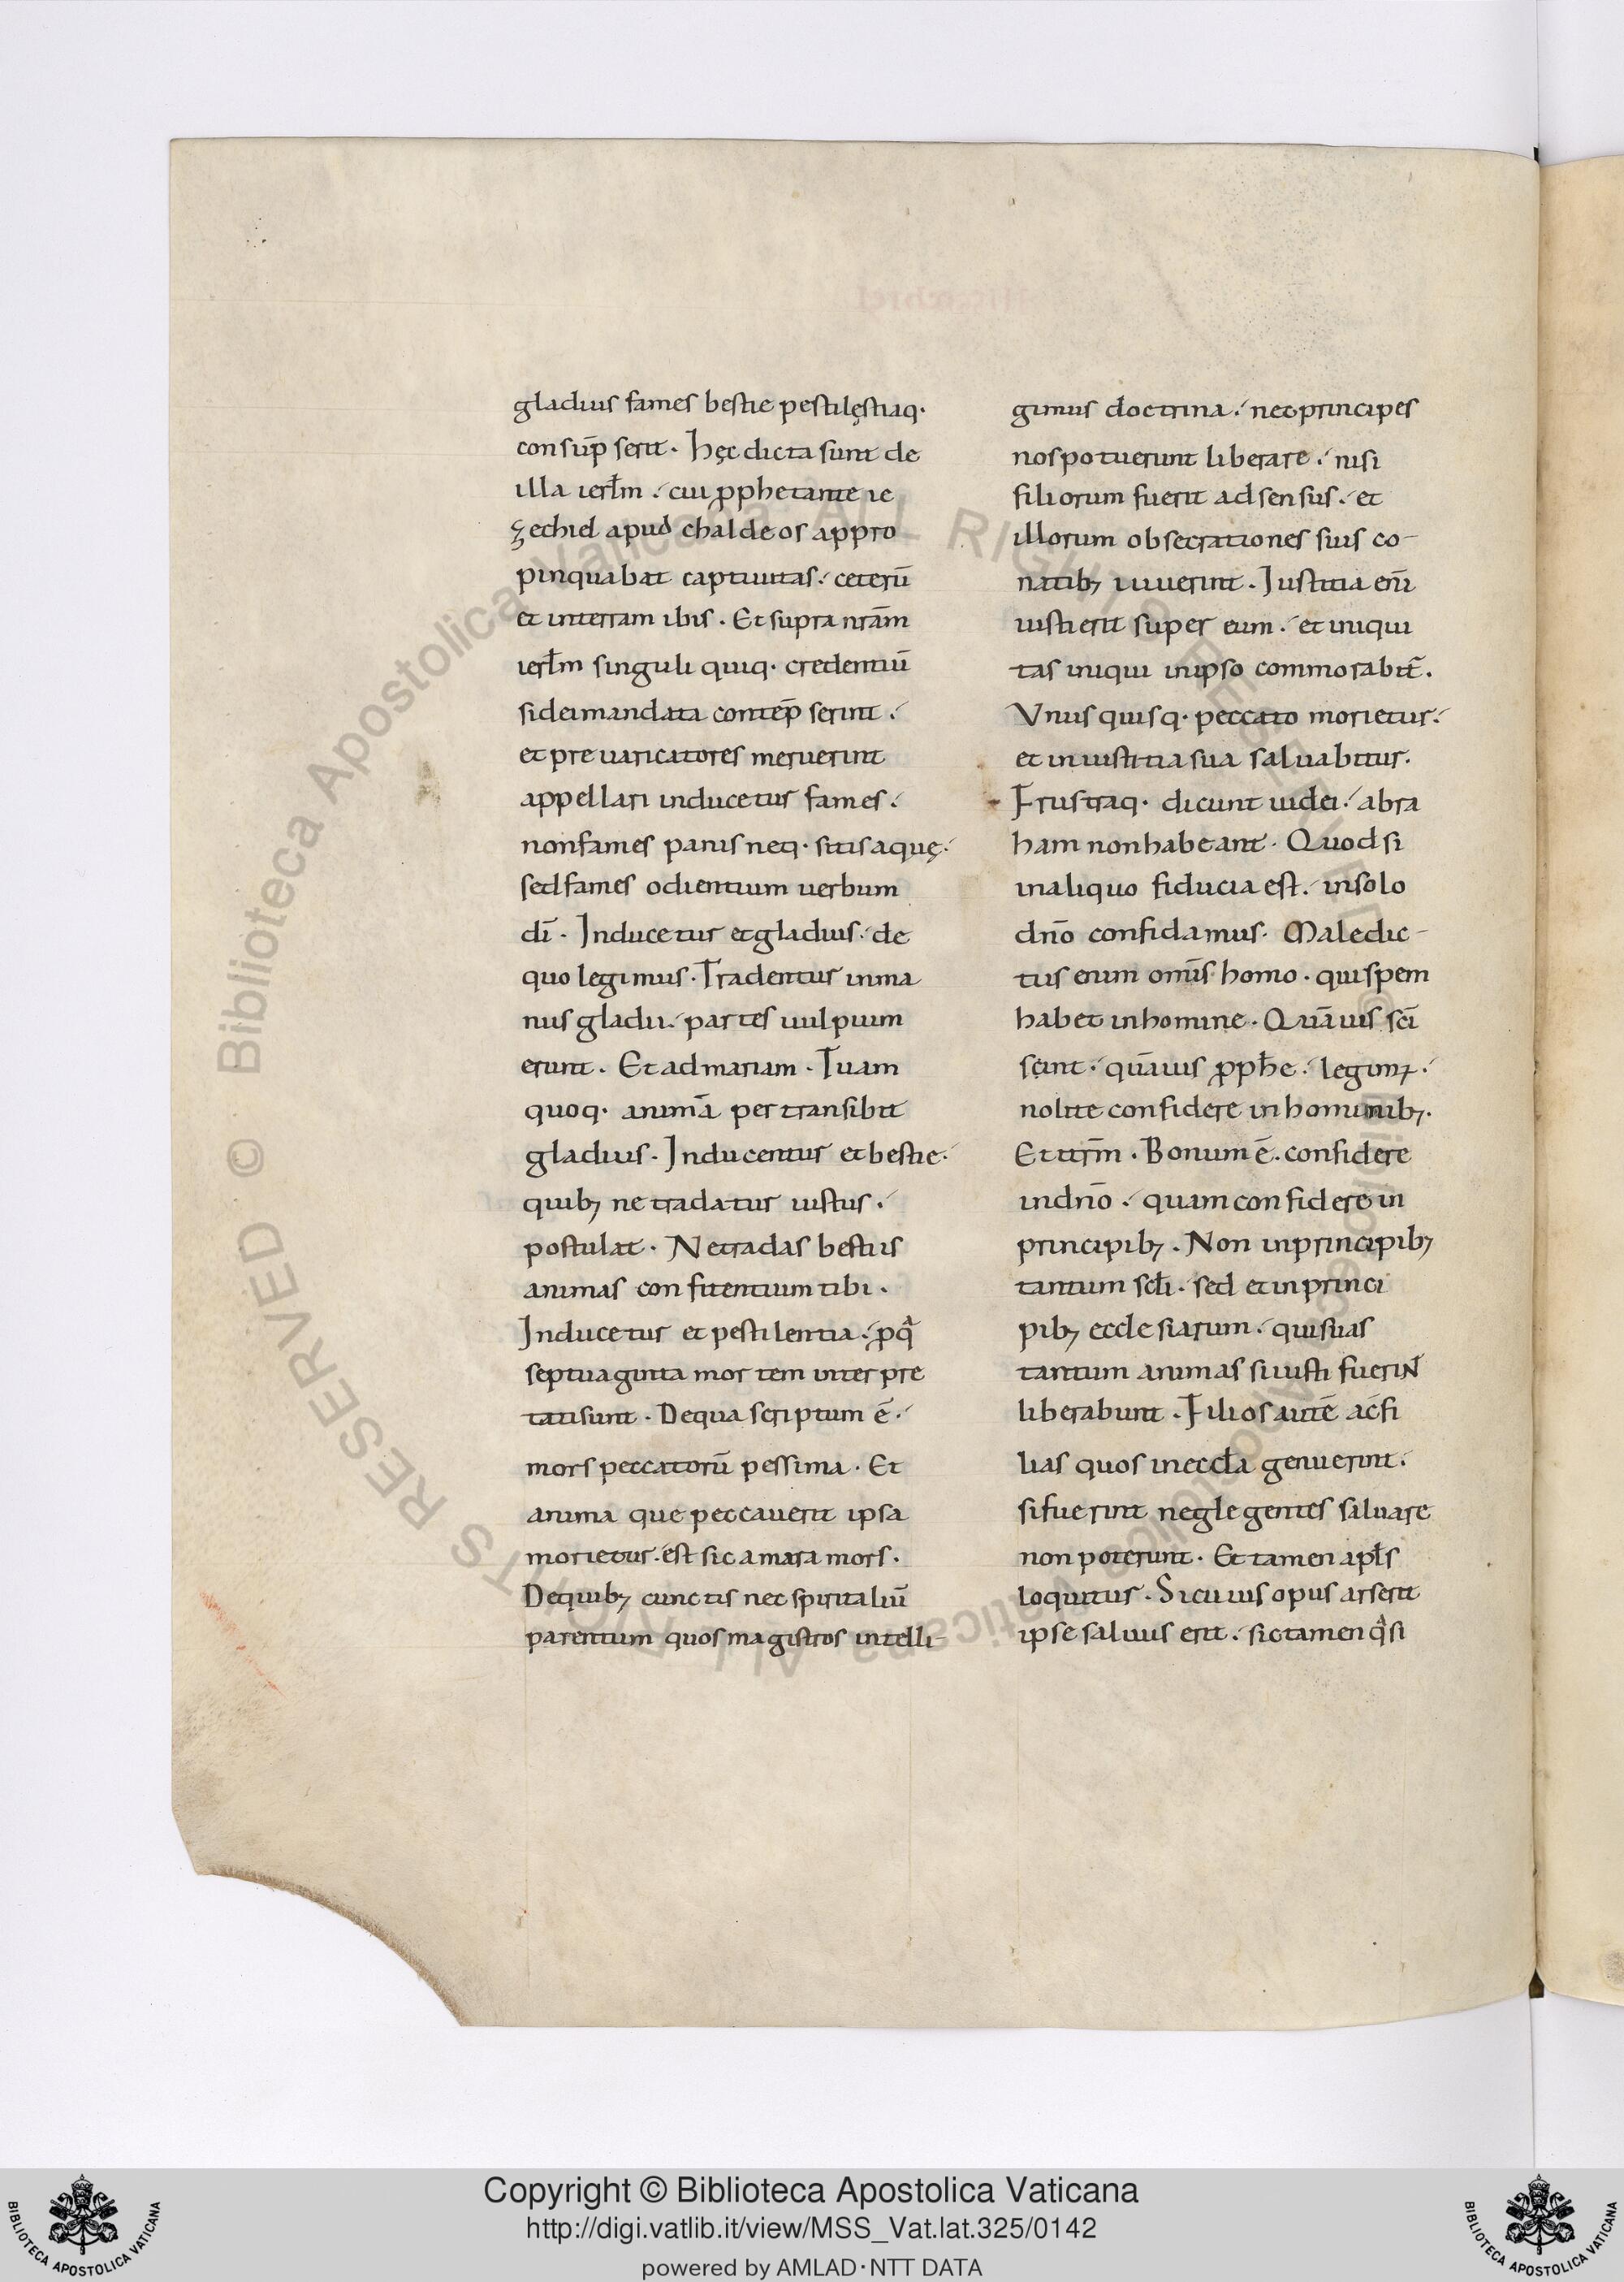 gladius fames bestie pestilęntiaq·
consūp serit. hęc dicta sunt de
illa ierłm ·́ cui ꝓphetante ie
zechiel apud chaldeos appro
pinquabat captiuitas ·́ ceterū
et interram ibis . Et supra nrām
ierłm singuli quiq· credentiū
si dei mandata contēp serint ·́
et preuaricatores meruerint
appellari inducetur fames ·́
non fames panis neq· sitis aquę ·́
sed fames odientium uerbum
dī . Inducetur et gladius ·́ de
quo legimus . Tradentur in ma
nus gladii ·́ partes uulpium
erunt . Et ad mariam . Tuam
quoq· animā per transibit
gladius . Inducentur et bestie ·́
quibꝫ ne tradatur iustus ·́
postulat . Ne tradas bestiis
animas confitentium tibi .
Inducetur et pestilentia ·́ ꝓ qͣ
septuaginta mortem inter pre
tati sunt . De qua scriptum ē ·́
mors peccatorū pessima . Et
anima que peccauerit ipsa
morietur . est sic amara mors .
De quibꝫ cunctis nec spiritaliū
parentum quos magistros intelli-
gimus doctrina ·́ nec principes
nos potuerunt liberare ·́ nisi
filiorum fuerit ad sensus ·́ et
illorum obsecrationes suis co-
natibꝫ iuuerint . Iustitia enī
iusti erit super eum ·́ et iniqui
tas iniqui in ipso commorabit̄ .
Vnus quisq· peccato morietur ·́
et in iustitia sua saluabitur .
Frustraq· dicunt iudei ·́ abra
ham non habeant . Quod si
in aliquo fiducia est ·́ in solo
dn̄o confidamus . Maledic-
tus enim omīs homo . qui spem
habet in homine . Quāuis scī
seint ·́ quāuis ꝓpħe ·́ legimꝰ ·́
nolite confidere in hominibꝫ .
Et itrm̄ . Bonum ē . confidere
in dn̄o ·́ quam confidere in
principibꝫ . Non in principibꝫ
tantum scłi . sed et in princi
pibꝫ ecclesiarum ·́ qui suas
tantum animas si iusti fuerint
liberabunt . Filios autē ac fi
lias quos in eccła genuerint ·́
si fuerint neglegentes saluare
non poterunt . Et tamen apłs
loquitur . Si cuius opus arserit
ipse saluus erit ·́ sic tamen qͣsi
Copyright © Biblioteca Apostolica Vaticana
http://digi.vatlib.it/view/MSS_Vat.lat.325/0142
powered by AMLAD·NTT DATA